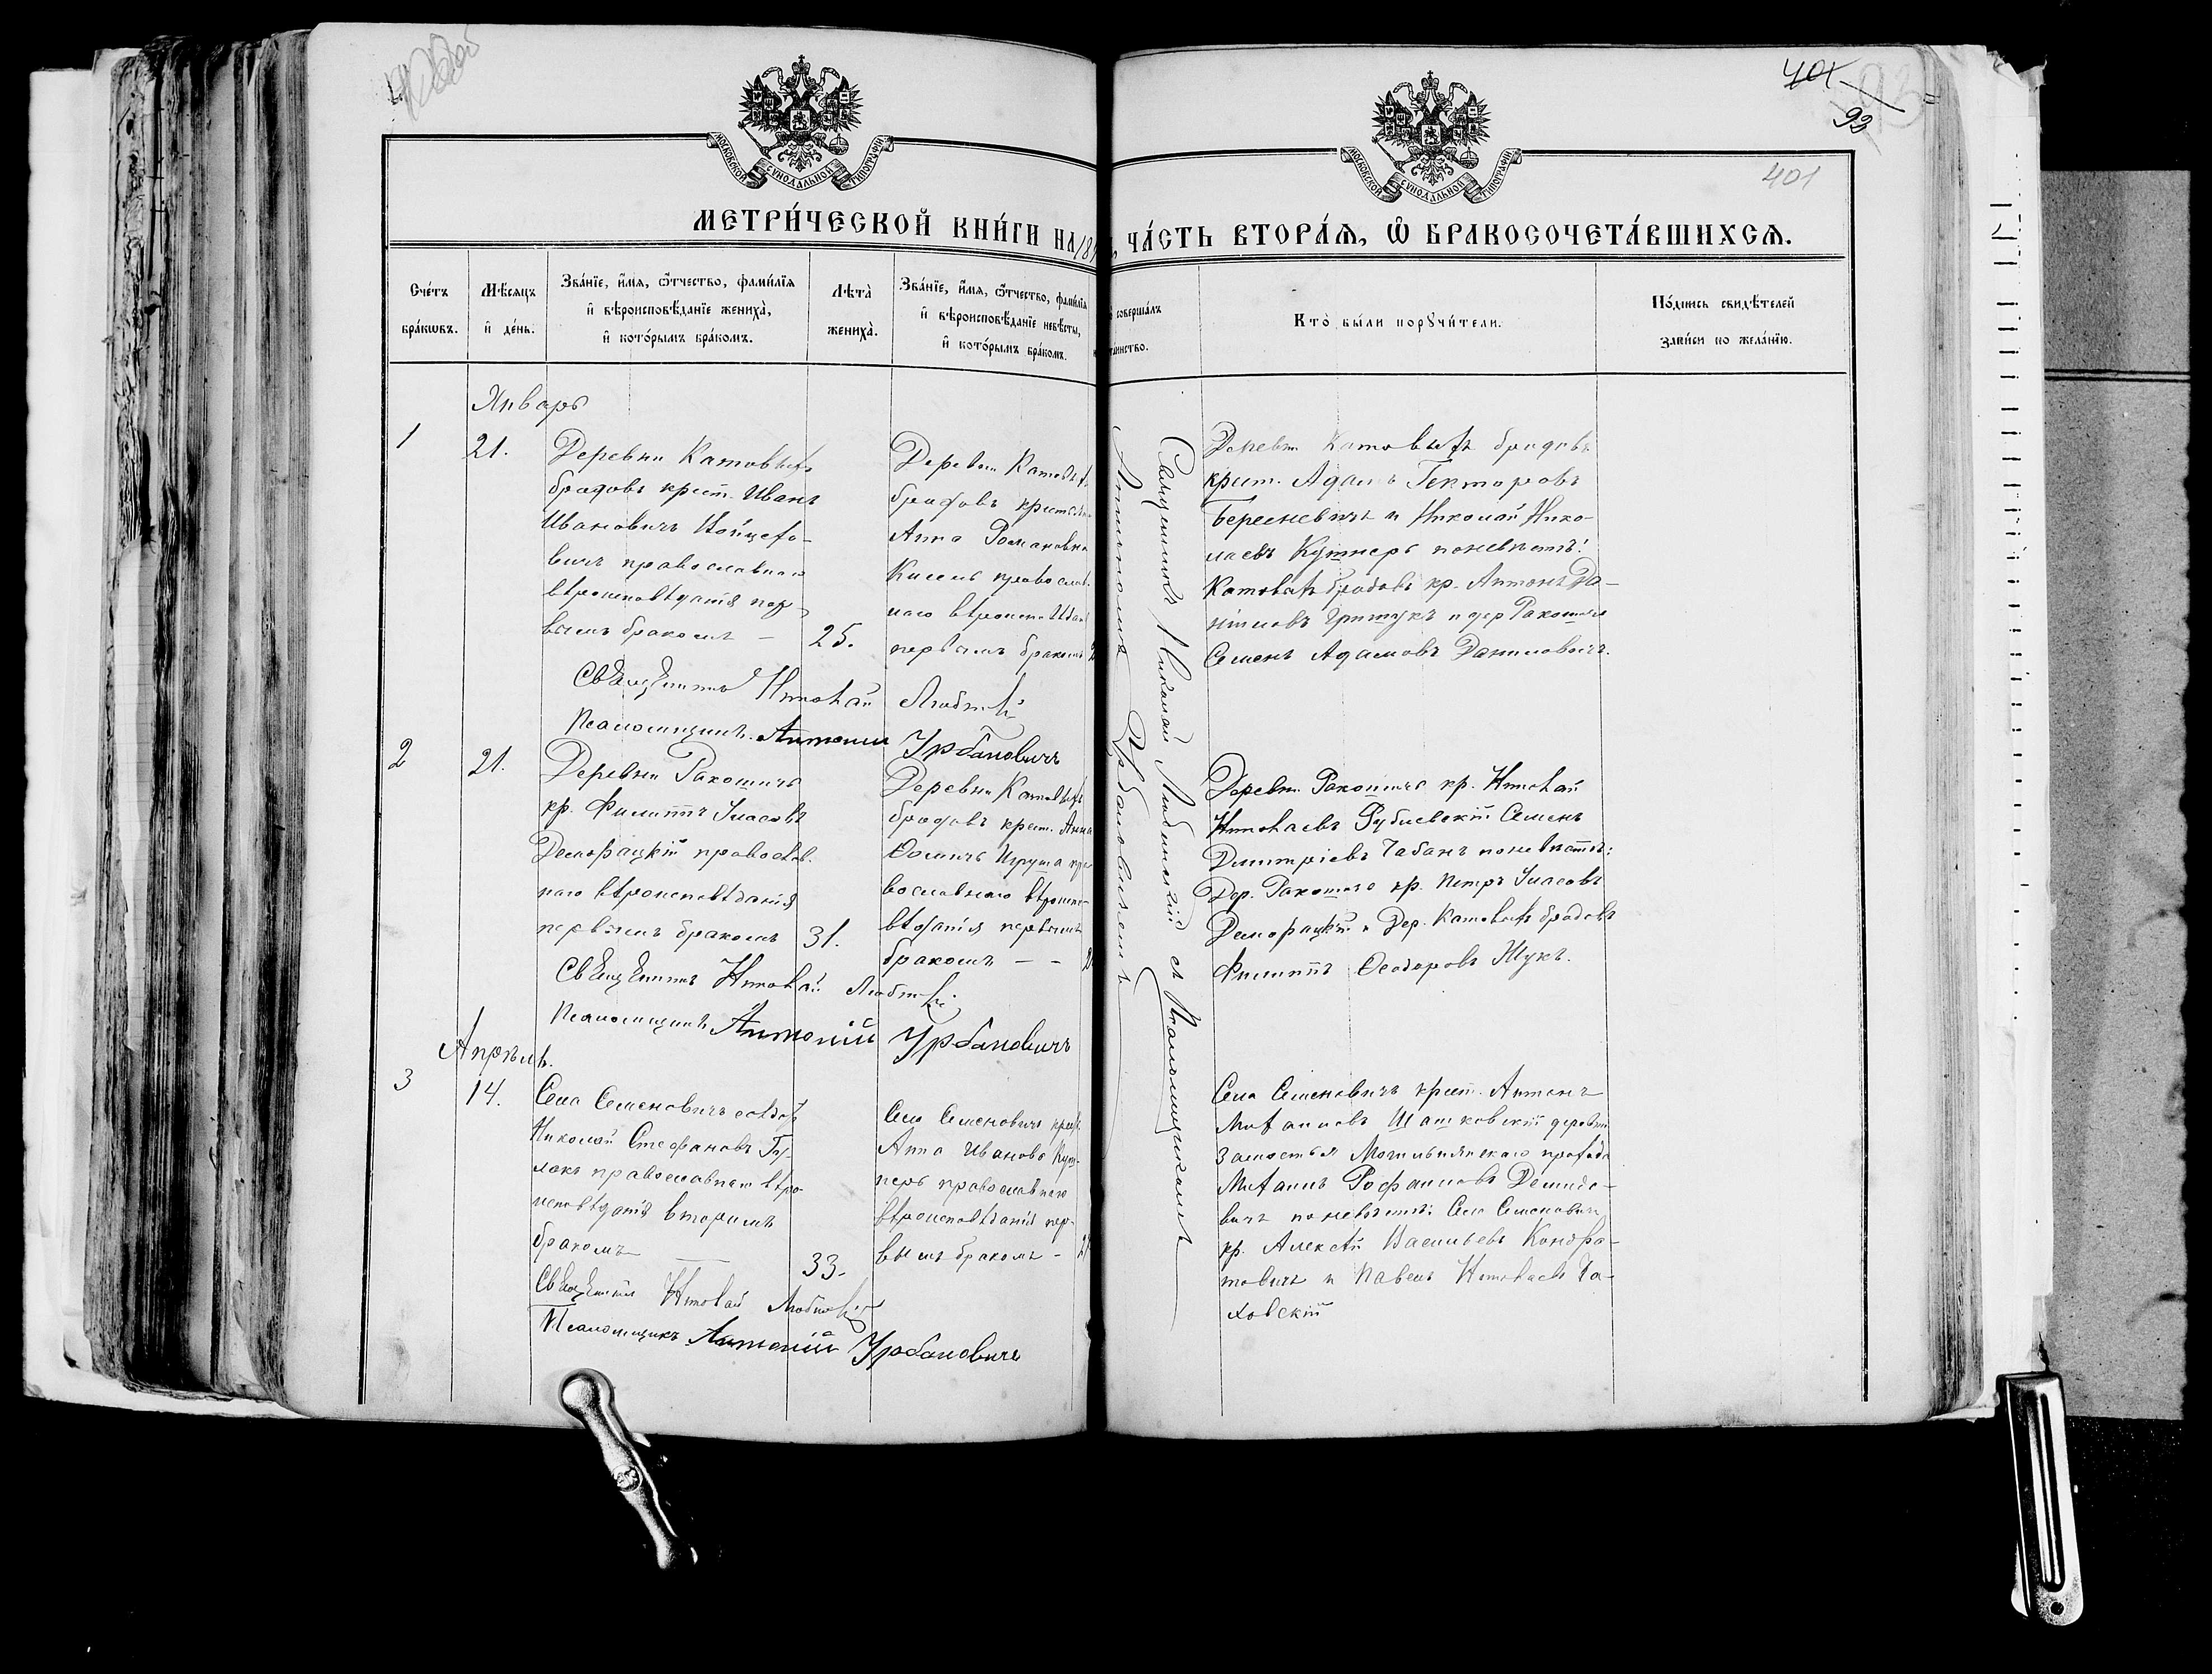 401
93
401
МОСКОВСКОЙ СУНОДАЛЬНОЙ ТИПОГРАФІИ
МОСКОВСКОЙ СУНОДАЛЬНОЙ ТИПОГРАФІИ
МЕТРИ́ЧЕСКОЙ КНИ́ГИ НА 18
ЧА́СТЬ ВТОРА́Я, Ѡ БРАКОСОЧЕТА́ВШИХСЯ.
Сче́тъ бра́кωвъ.
Мѣ́сяцъ и҆ де́нь.
Зва́нїе, и҆́мя, ѻ҆́тчество, фами́лїя
и҆ вѣроисповѣ́данїе жениха̀,
и҆ кото́рымъ бра́комъ.
Лѣта̀ жениха̀.
Зва́нїе, и҆́мя, ѻ҆́тчество, фами́лїя
и҆ вѣроисповѣ́данїе невѣ́сты,
и҆ кото́рымъ бра́комъ.
совершалъ
таинство.
Кто̀ бы́ли порꙋчи́тели.
По́дпись свидѣ́телей
за́писи по жела́нїю.
Январь
1
21.
Деревни Катовыхъ
бродовъ крест. Иванъ
Ивановичъ Войцехо-
вичъ православнаго
вѣроисповѣданія пер-
вымъ бракомъ –
25.
Деревни Катовых
бродовъ крестьян
Анна Романовна
Кисель православ-
наго вѣроиспов
первымъ бракомъ
Деревни Катовыхъ бродовъ
крест. Адамъ Гекторовъ
Береневичъ и Николай Нико-
лаевъ Кушнеръ по невѣстѣ:
Катовыхъ бродовъ кр. Антонъ Да-
ніиловъ Грицукъ и дер Ракошичъ
Семенъ Адамовъ Даниловичъ.
Священникъ Николай
Псаломщикъ Антоній Урбановичъ
2
21.
Деревни Ракошичъ
кр. Филиппъ Уласовъ
православ-
наго вѣроисповѣданія
первымъ бракомъ
31.
Деревни Катовыхъ
бродовъ крест. Анна
Ѳомина пра-
вославнаго вѣроиспо-
вѣданія первымъ
бракомъ – –
Деревни Ракошичъ кр. Николай
Николаевъ Рубиевскій Семенъ
Дмитріевъ Чабанъ по невѣстѣ:
Дер. Ракошичъ кр. Петръ Уласовъ
и Дер. Катовыхъ бродовъ
Филиппъ Ѳеодоровъ Шукъ.
Священникъ Николай
Псаломщикъ Антоній Урбановичъ
Апрѣль.
3
14.
Села Семеновичъ
Николай Стефановъ Гу-
лакъ православнаго вѣро-
исповѣданія вторымъ
бракомъ –
33.
Села Семеновичъ крест.
Анна Иванова Куш-
неръ православнаго
вѣроисповѣданія пер-
вымъ бракомъ –
Села Семеновичъ крест. Антонъ
Михаиловъ Шашковскій деревни
Замостья Могильнянскаго прихода
Михаилъ Демидо-
вичъ по невѣстѣ: Села Семеновичъ
кр. Алексѣй Васильевъ Кондра-
товичъ и Павелъ Николаевъ Ча-
ховскій
Священникъ Николай
Псаломщикъ Антоній Урбановичъ
Священникъ Николай Любинскій съ Псаломщикомъ
Антоніемъ Урбановичемъ